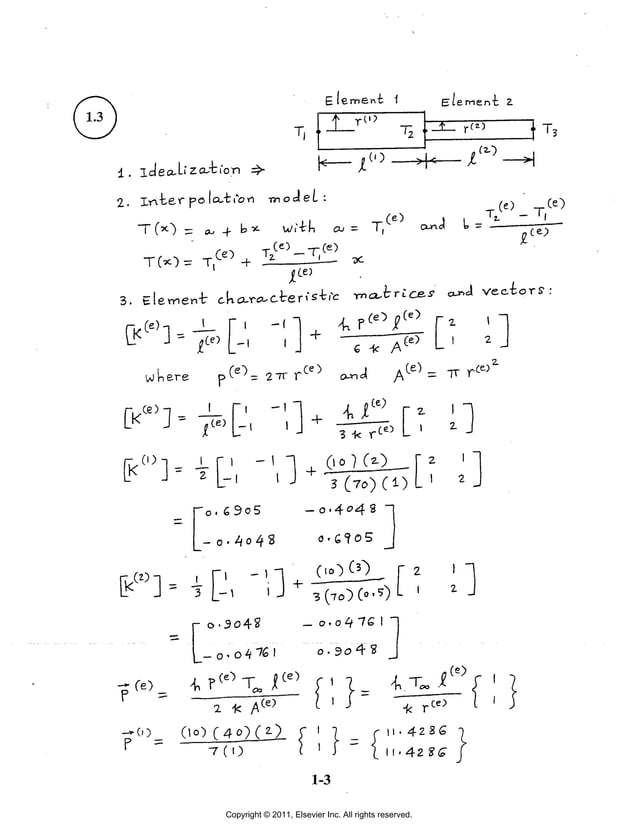 1.3
Element 1 Element 2
T₁ r⁽¹⁾ T₂ r⁽²⁾ T₃
l⁽¹⁾ l⁽²⁾
1. Idealization ⇒
2. Interpolation model:
T(x) = a + bx with a = T₁⁽ᵉ⁾ and b = (T₂⁽ᵉ⁾ − T₁⁽ᵉ⁾) / l⁽ᵉ⁾
T(x) = T₁⁽ᵉ⁾ + (T₂⁽ᵉ⁾ − T₁⁽ᵉ⁾) / l⁽ᵉ⁾ x
3. Element characteristic matrices and vectors:
[K⁽ᵉ⁾] = 1/l⁽ᵉ⁾ [1 −1; −1 1] + h P⁽ᵉ⁾ l⁽ᵉ⁾ / 6 k A⁽ᵉ⁾ [2 1; 1 2]
where p⁽ᵉ⁾ = 2π r⁽ᵉ⁾ and A⁽ᵉ⁾ = π r⁽ᵉ⁾²
[K⁽ᵉ⁾] = 1/l⁽ᵉ⁾ [1 −1; −1 1] + h l⁽ᵉ⁾ / 3 k r⁽ᵉ⁾ [2 1; 1 2]
[K⁽¹⁾] = 1/2 [1 −1; −1 1] + (10)(2) / 3(70)(1) [2 1; 1 2]
= [0.6905 −0.4048; −0.4048 0.6905]
[K⁽²⁾] = 1/3 [1 −1; −1 1] + (10)(3) / 3(70)(0.5) [2 1; 1 2]
= [0.9048 −0.04761; −0.04761 0.9048]
P⃗⁽ᵉ⁾ = h P⁽ᵉ⁾ T∞ l⁽ᵉ⁾ / 2 k A⁽ᵉ⁾ {1; 1} = h T∞ l⁽ᵉ⁾ / k r⁽ᵉ⁾ {1; 1}
P⃗⁽¹⁾ = (10)(40)(2) / 7(1) {1; 1} = {11.4286; 11.4286}
1-3
Copyright © 2011, Elsevier Inc. All rights reserved.